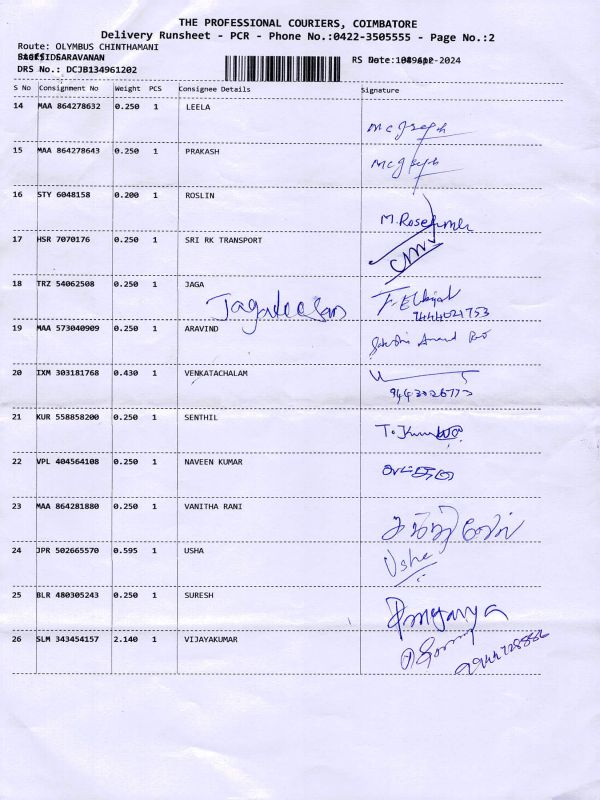 THE PROFESSIONAL COURIERS, COIMBATORE
Delivery Runsheet - PCR - Phone No.:0422-3505555 - Page No.:2
Route: OLYMBUS CHINTHAMANI
SARAVANAN
DRS No.: DCJB134961202
-2024
S No Consignment No Weight PCS Consignee Details Signature
14 MAA 864278632 0.250 1 LEELA
15 MAA 864278643 0.250 1 PRAKASH
16 STY 6048158 0.200 1 ROSLIN
M.
17 HSR 7070176 0.250 1 SRI RK TRANSPORT
18 TRZ 54062508 0.250 1 JAGA
Jagadeesan
9444021753
19 MAA 573040909 0.250 1 ARAVIND
Anand Rao
20 IXM 303181768 0.430 1 VENKATACHALAM
9443026773
21 KUR 558858200 0.250 1 SENTHIL
22 VPL 404564108 0.250 1 NAVEEN KUMAR
23 MAA 864281880 0.250 1 VANITHA RANI
24 JPR 502665570 0.595 1 USHA
Usha
25 BLR 480305243 0.250 1 SURESH
26 SLM 343454157 2.140 1 VIJAYAKUMAR